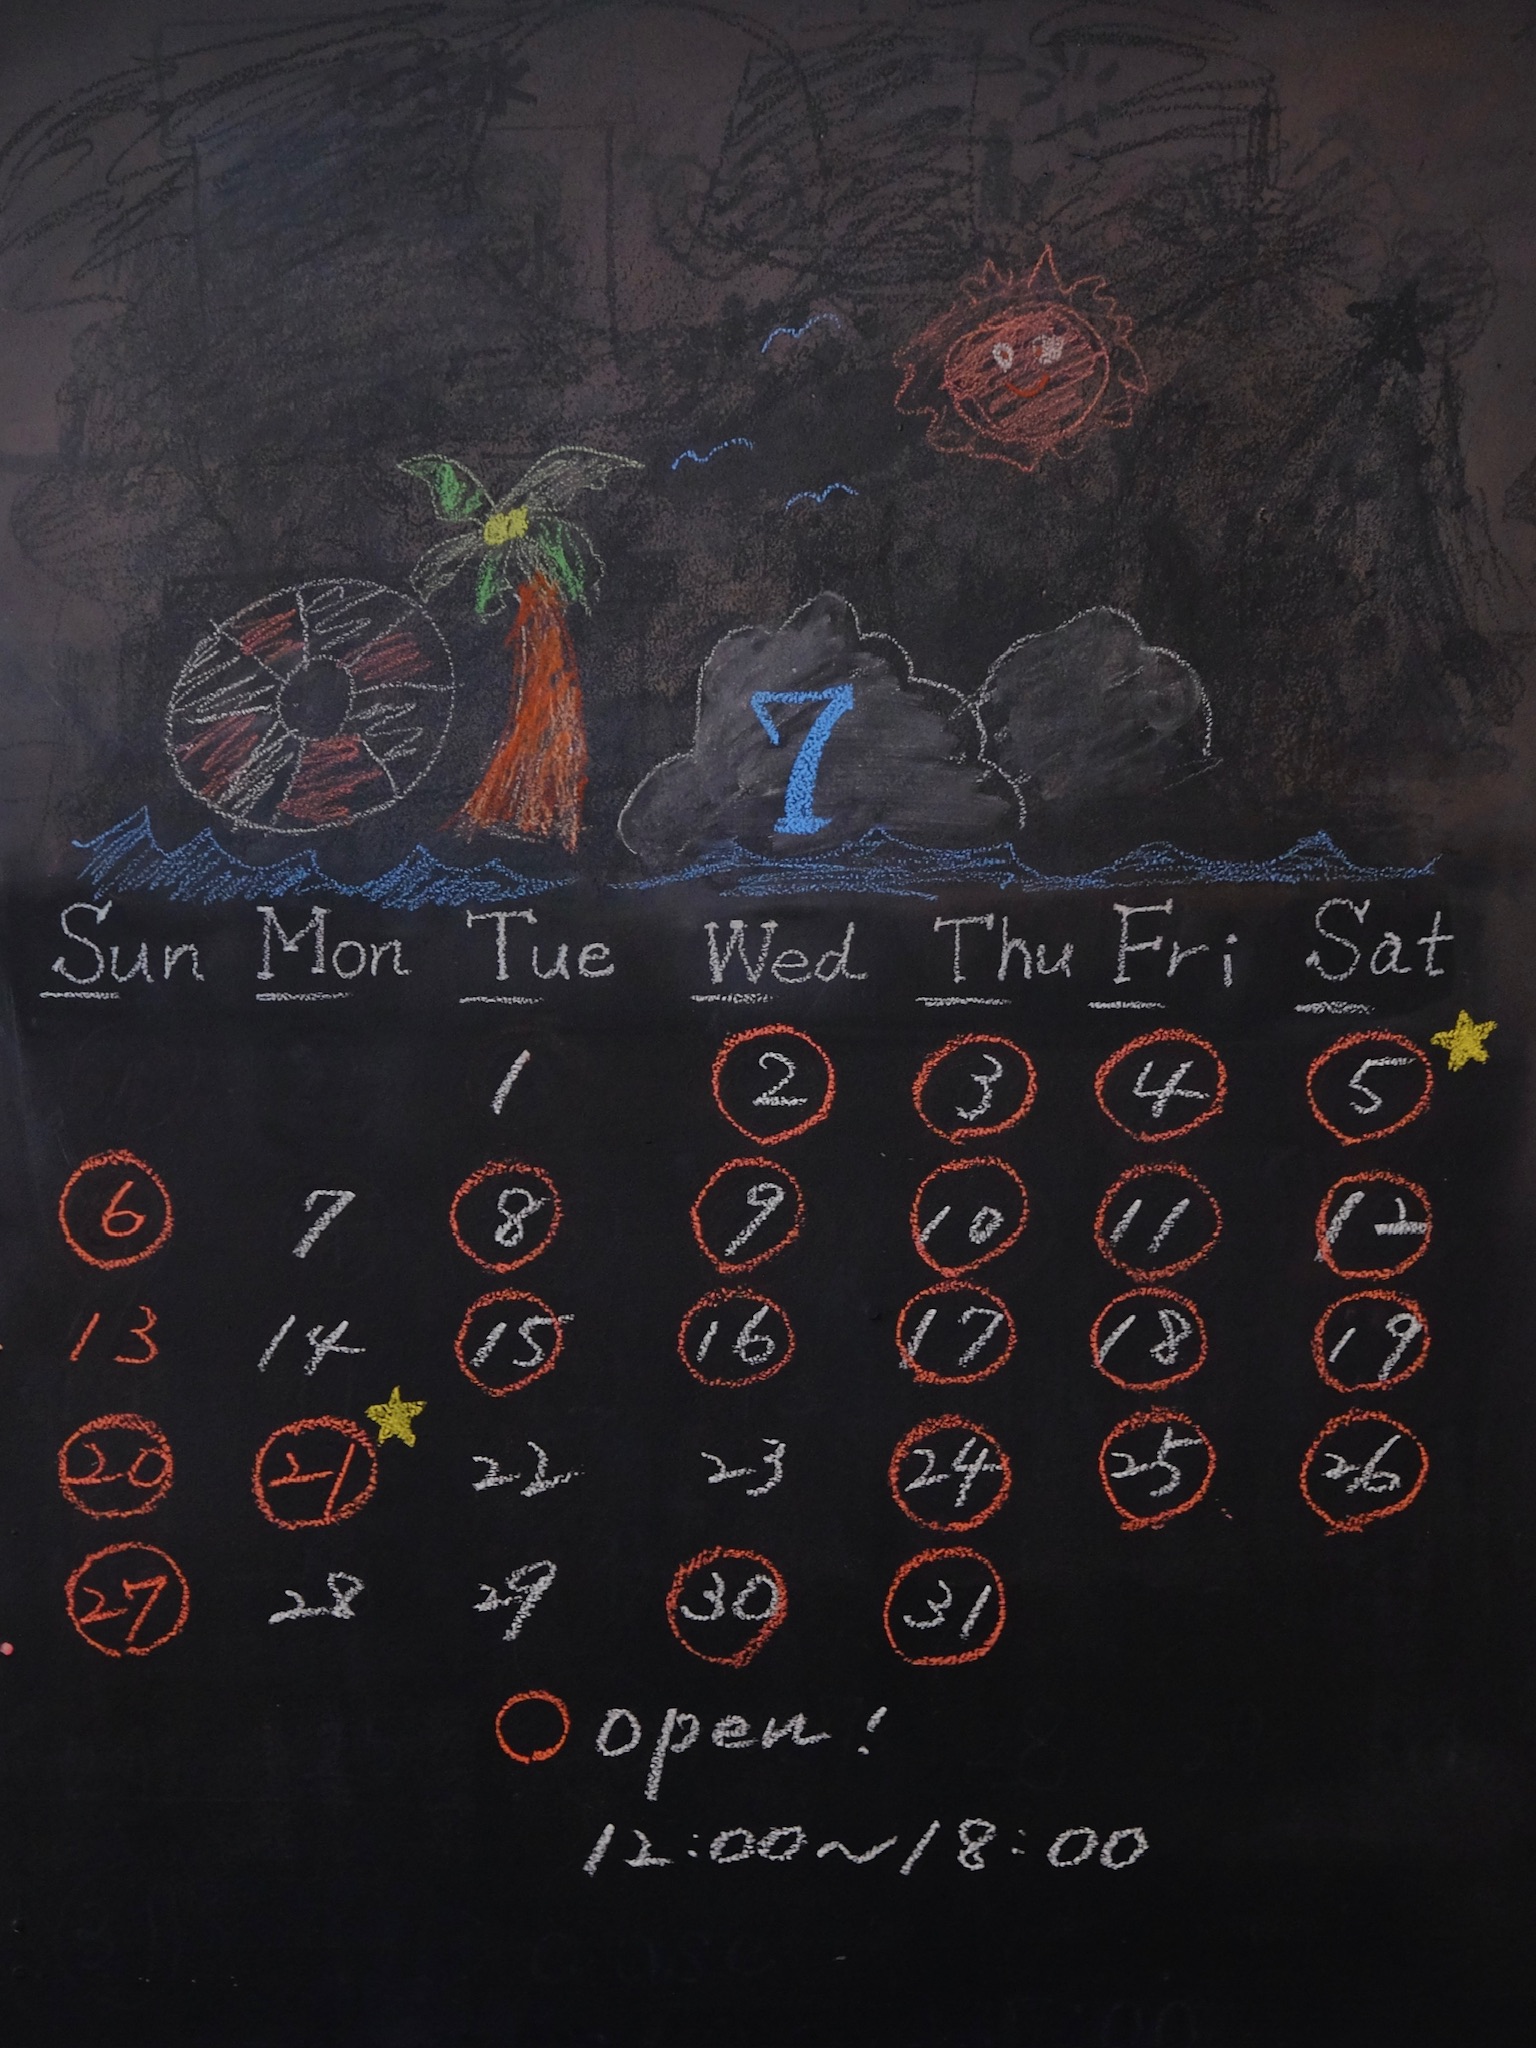 7
Sun Mon Tue Wed Thu Fri Sat
1 2 3 4 5
6 7 8 9 10 11 12
13 14 15 16 17 18 19
20 21 22 23 24 25 26
27 28 29 30 31
open!
12:00~18:00